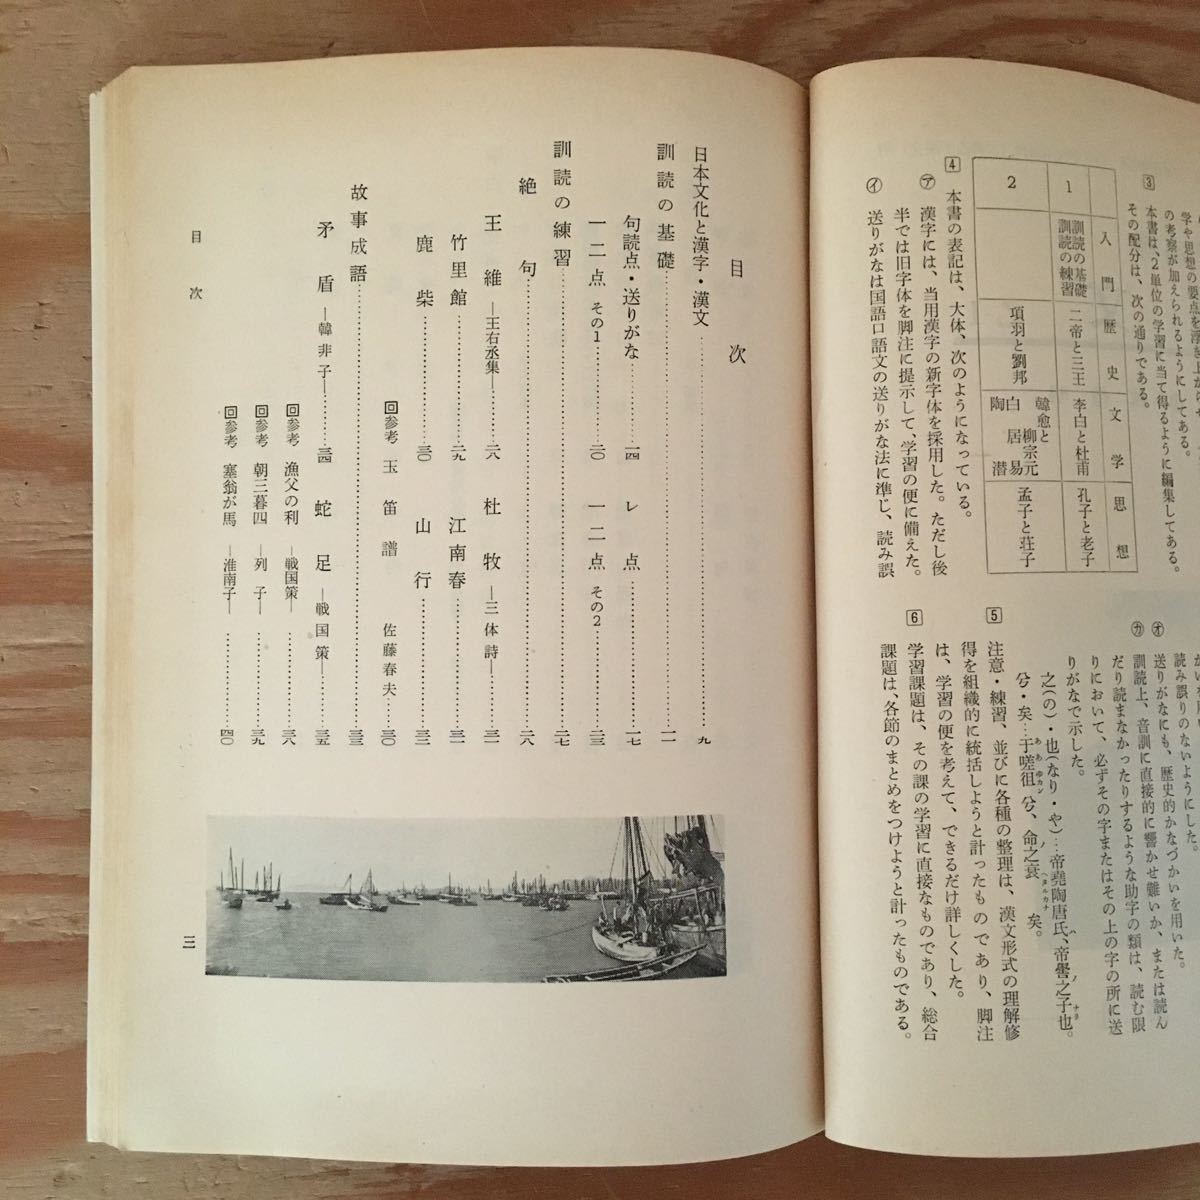 学や思想の要点を浮き上が
の考察が加えられるようにしてある。
3 本書は、2単位の学習に当て得るように編集してある。
その配分は、次の通りである。
入門 歴史 文学 思想
1 訓読の基礎 訓読の練習 二帝と三王 李白と杜甫 孔子と老子
2 項羽と劉邦 韓愈と柳宗元 白居易 陶潜 孟子と荘子
4 本書の表記は、大体、次のようになっている。
㋐ 漢字には、当用漢字の新字体を採用した。ただし後
半では旧字体を脚注に提示して、学習の便に備えた。
㋑ 送りがなは国語口語文の送りがな法に準じ、読み誤
読み誤りのないようにした。
㋔ 送りがなにも、歴史的かなづかいを用いた。
㋕ 訓読上、音訓に直接的に響かせ難いか、または読ん
だり読まなかったりするような助字の類は、読む限
りにおいて、必ずその字またはその上の字の所に送
りがなで示した。
之(の)・也(なり・や)…帝堯陶唐氏、帝嚳之子也。
兮・矣…于嗟徂兮、命之衰矣。
5 注意・練習、並びに各種の整理は、漢文形式の理解修
得を組織的に統括しようと計ったものであり、脚注
は、学習の便を考えて、できるだけ詳しくした。
6 学習課題は、その課の学習に直接なものであり、総合
課題は、各節のまとめをつけようと計ったものである。
目次
日本文化と漢字・漢文……九
訓読の基礎……一一
句読点・送りがな……一四 レ点……一七
一二点 その1……二〇 一二点 その2……二三
訓読の練習……二七
絶句……二八
王維―王右丞集―……二八 杜牧―三体詩―……三一
竹里館……二九 江南春……三一
鹿柴……三〇 山行……三二
回参考 玉笛譜 佐藤春夫……三〇
故事成語……三三
矛盾―韓非子―……三四 蛇足―戦国策―……三五
回参考 漁父の利―戦国策―……三八
回参考 朝三暮四―列子―……三九
回参考 塞翁が馬―淮南子―……四〇
目次
三